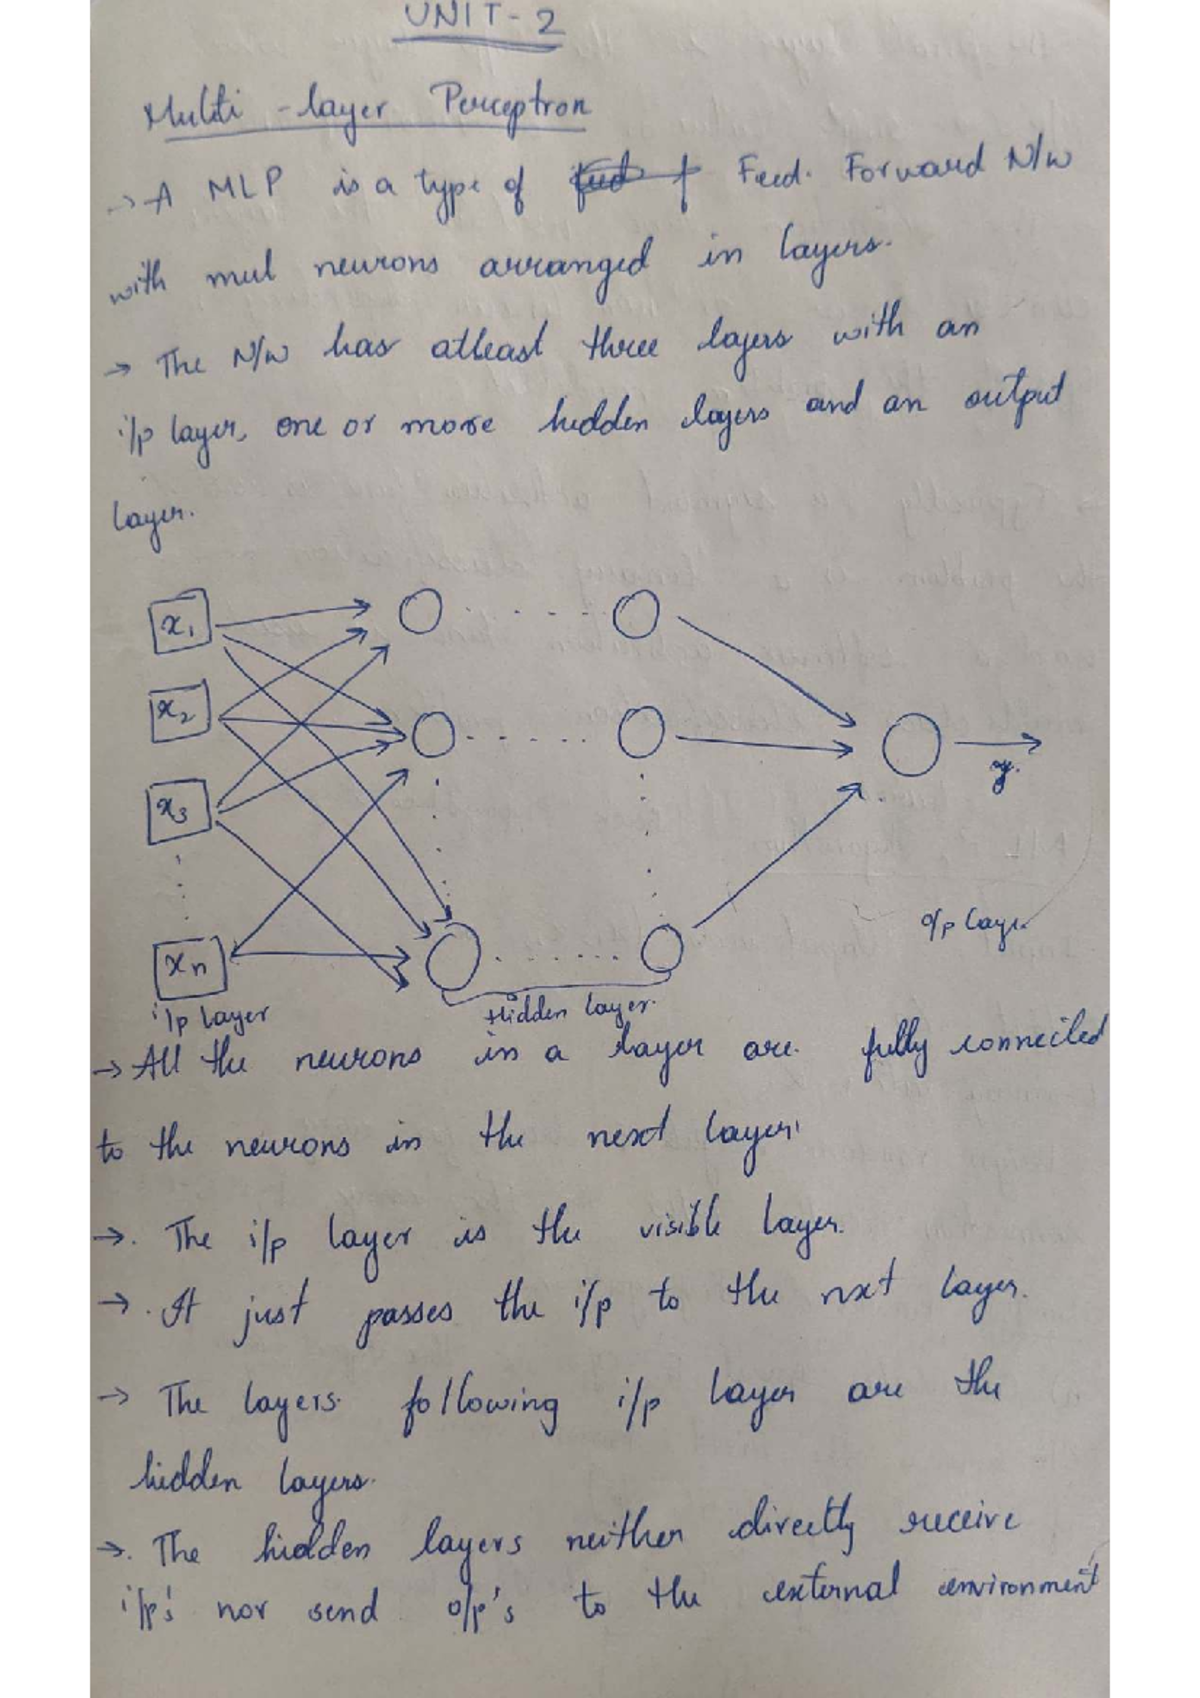 UNIT-2
Multi-layer Perceptron
→ A MLP is a type of Feed. Forward N/w
with mul neurons arranged in layers.
→ The N/w has atleast three layers with an
i/p layer, one or more hidden layers and an output
layer.
x1
x2
x3
xn
y.
o/p layer
i/p layer
Hidden layer.
→ All the neurons in a layer are. fully connected
to the neurons in the next layer.
→. The i/p layer is the visible layer.
→. It just passes the i/p to the nxt layer.
→ The layers. following i/p layer are the
hidden layers.
→. The hidden layers neither directly receive
i/p's nor send o/p's to the external environment